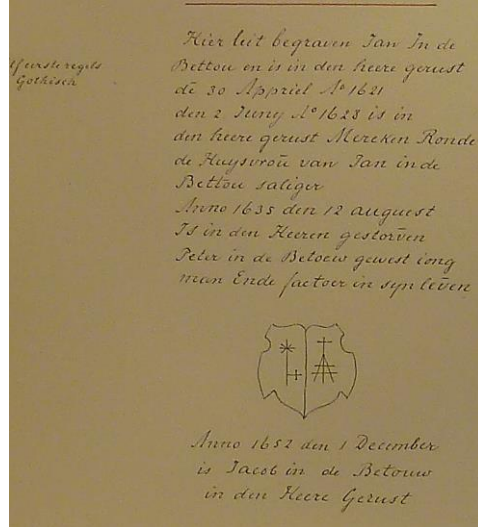 Eerste regels
Gothisch
Hier leit begraven Jan In de
Bettou en is in den heere gerust
dē 30 Appriel Aº 1621
den 2 Juny Aº 1623 is in
den heere gerust Mereken Ronde
de Huysvroū van Jan in de
Bettou saliger
Anno 1635 den 12 auguest
Is in den Heeren gestorven
Peter in de Betoew gewest iong
man Ende factoer in syn leven
Anno 1652 den 1 December
is Jacob in de Betouw
in den Heere Gerust